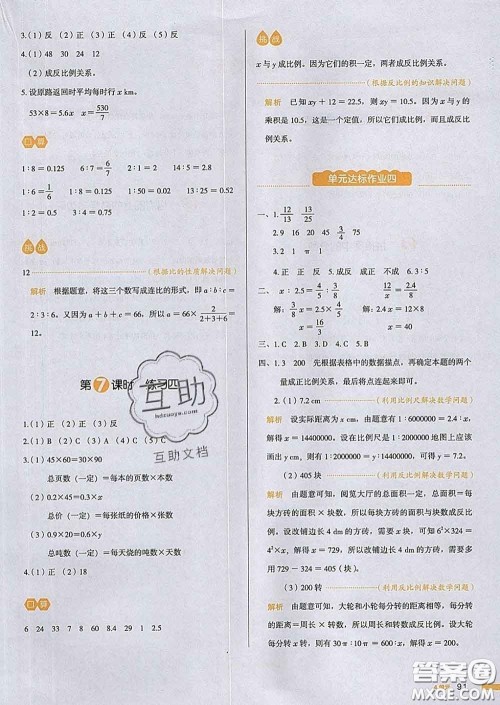 3.(1)反 (2)正 (3)正 (4)正 (5)反
4.(1)48 30 24 12
(2)成反比例关系。
5. 设原路返回时平均每时行 x km。
53×8=5.6x x=530/7
口算
1:8=0.125 6:7=6/7 2:1=2 5:4=1.25
1:6=1/6 4:8=0.5 14:2=7 1:8=0.125
1:2=0.5 3:4=0.75
挑战
12 (根据比的性质解决问题)
解析 根据题意,将这三个数写成连比的形式,即 a:b:c=
2:3:6。又因为 a+b+c=66,所以 a=66×2/(2+3+6)=
12。
第7课时 练习四
1.(1)正 (2)正 (3)反
2.(1)C (2)B (3)B (4)A
3.(1)45×60=30×90
总页数(一定)=每本的页数×本数
(2)0.9×40=1.2×30
总价(一定)=每张纸的价格×张数
(3)0.9×20=0.6×30
总吨数(一定)=每天烧的吨数×天数
4.(1)正 (2)18
口算
6 24 33 7 8 60 8.4 29 1 2.5
挑战
x 与 y 成比例。因为它们的积一定,两者成反比例关系。
(根据反比例的知识解决问题)
解析 已知 xy+12=22.5,则 xy=10.5。因为 x 与 y 的
乘积是 10.5,这是一个定值,所以它们成比例,而且成反
比例关系。
单元达标作业四
一、1. 12/13 13/25
2. 9 16 20 45 3/4 75
3. 2 1 π 1
4. 正 正 反 5. 成反 成正 不成 6. 3:5
二、
三、1. C 2. B 3. D 4. C 5. B
四、1. 3 200 先根据表格中的数据描点,再确定本题的两个
量成正比例关系,最后将点连起来。
2.(1)7.2 cm (利用比例尺解决数学问题)
解析 设实际距离为 x cm,由题意可知,1:6000000=2.4:
x,解得 x=14400000。在比例尺是 1:2000000 地图上应该
画 y cm,则有 1:2000000=y:14400000,解得 y=7.2。
(2)405 块 (利用反比例解决数学问题)
解析 由题意可知,阅览大厅的总面积一定,总面积=每
块方砖的面积×块数,所以方砖的面积与块数成反比例
关系。设改铺边长 4 dm 的方砖,需要 x 块,则有 6²×324=
4²·x,解得 x=729。所以改铺边长 4 dm 的方砖,需要多
用 729-324=405(块)。
(3)200 转 (利用反比例解决数学问题)
解析 由题意可知,大轮和小轮每分转的距离相等,每分转
的距离=周长×转数,所以周长和转数成反比例。设小轮每
分转 x 转,则有 30π·10π=600·x
互助
hdzuowen.com
互助文档
答案圈
MXQE.COM
91